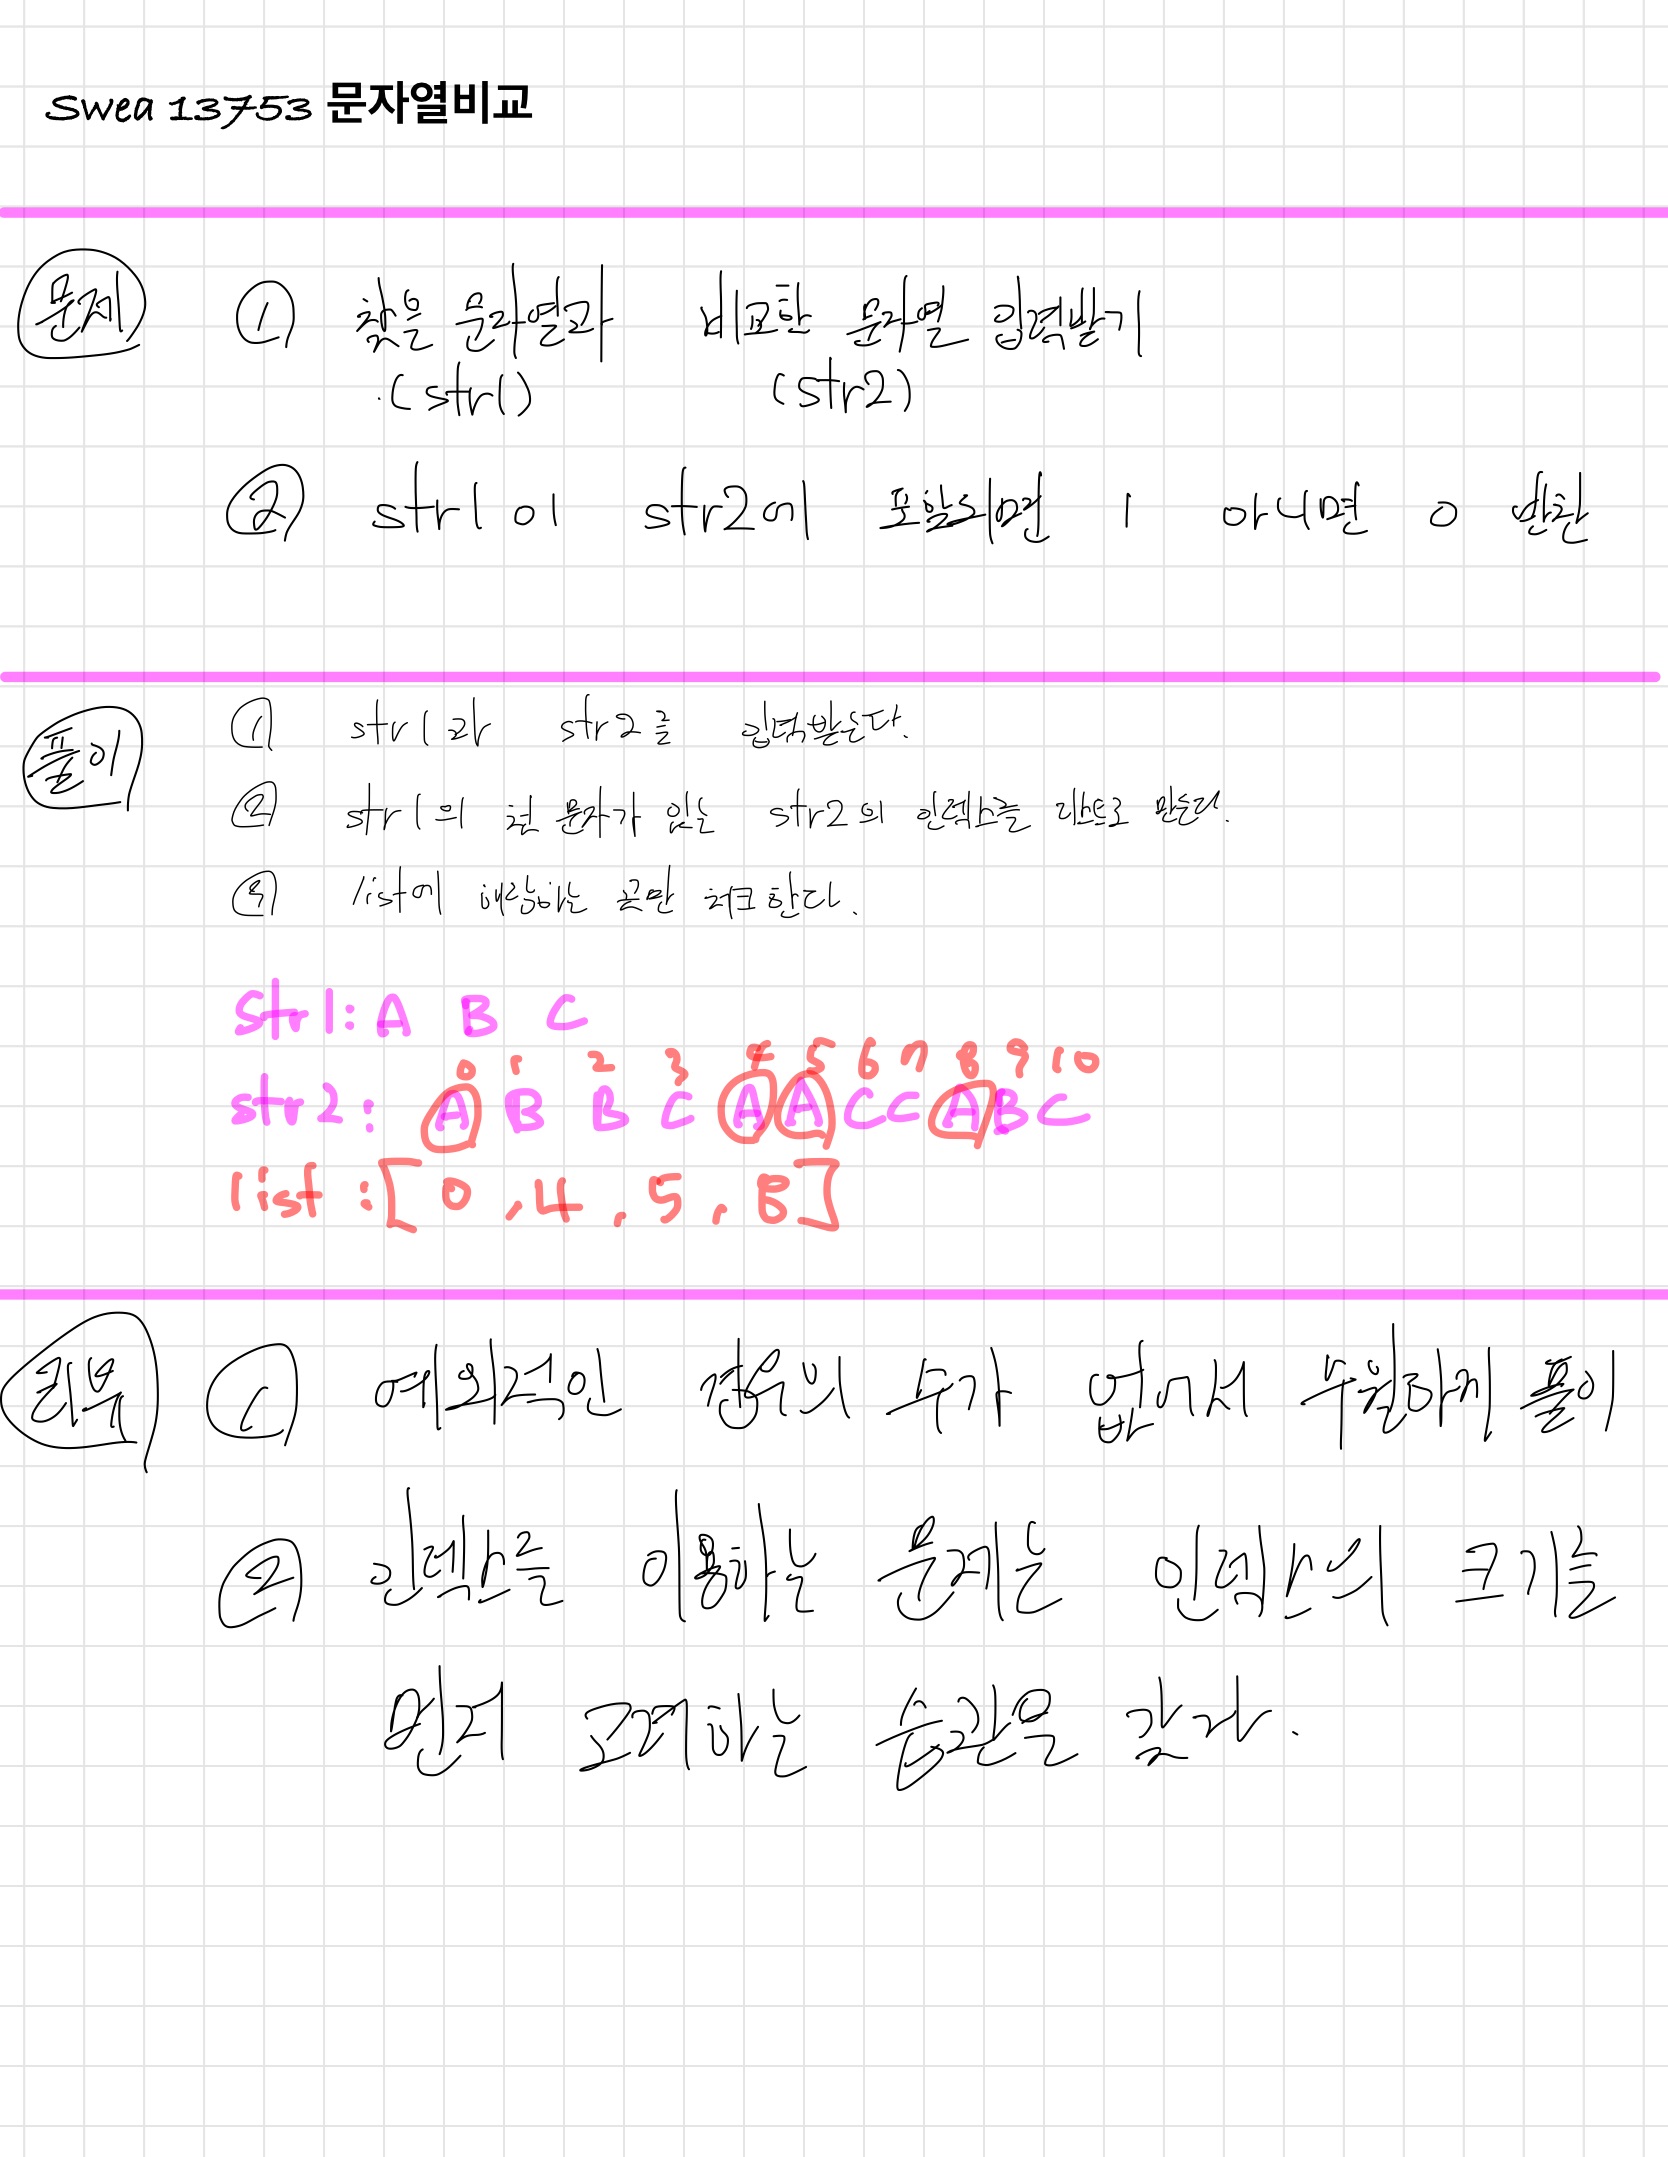 Swea 13753 문자열비교
문제 ① 찾을 문자열과 비교할 문자열 입력받기
(str1) (str2)
② str1이 str2에 포함되면 1 아니면 0 반환
풀이 ① str1과 str2를 입력받는다.
② str1의 첫 문자가 있는 str2의 인덱스를 리스트로 만든다.
③ list에 해당하는 곳만 체크한다.
str1: A B C
0 1 2 3 4 5 6 7 8 9 10
str2: A B B C A A C C A B C
list : [ 0 , 4 , 5 , 8 ]
리뷰 ① 예외적인 경우의 수가 없어서 수월하게 풀이
② 인덱스를 이용하는 문제는 인덱스의 크기를
먼저 고려하는 습관을 갖자.